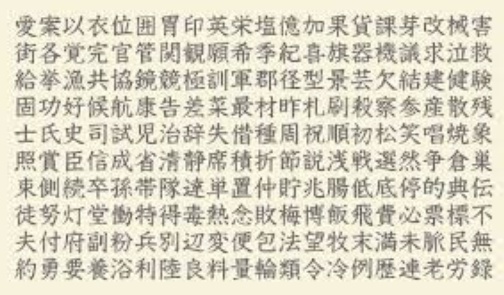 愛案以衣位囲胃印英栄塩億加果貨課芽改械害
街各覚完官管関観願希季紀喜旗器機議求泣救
給挙漁共協鏡競極訓軍郡径型景芸欠結建健験
固功好候航康告差菜最材昨札刷殺察参産散残
士氏史司試児治辞失借種周祝順初松笑唱焼象
照賞臣信成省清静席積折節説浅戦選然争倉巣
束側続卒孫帯隊達単置仲貯兆腸低底停的典伝
徒努灯堂働特得毒熱念敗梅博飯飛費必票標不
夫付府副粉兵別辺変便包法望牧末満未脈民無
約勇要養浴利陸良料量輪類令冷例歴連老労録